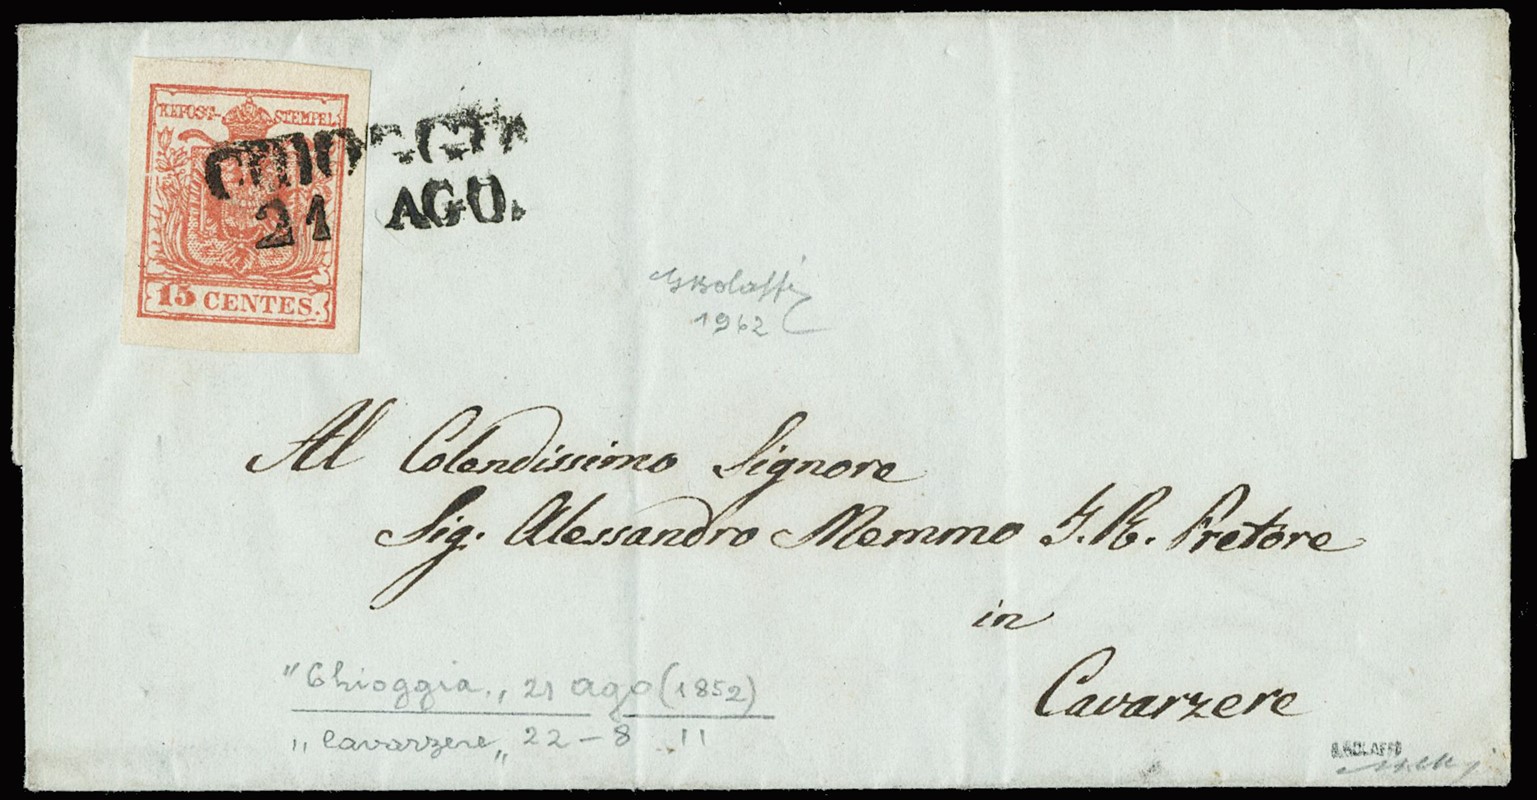 KKPOST-STEMPEL
CHIOGGIA
21 AGO.
15 CENTES.
GBolaffi
1962
Al Colendissimo Signore
Sig. Alessandro Memmo I. R. Pretore
in
Cavarzere
"Chioggia„ 21 ago (1852)
"Cavarzere„ 22-8 "
BOLAFFI